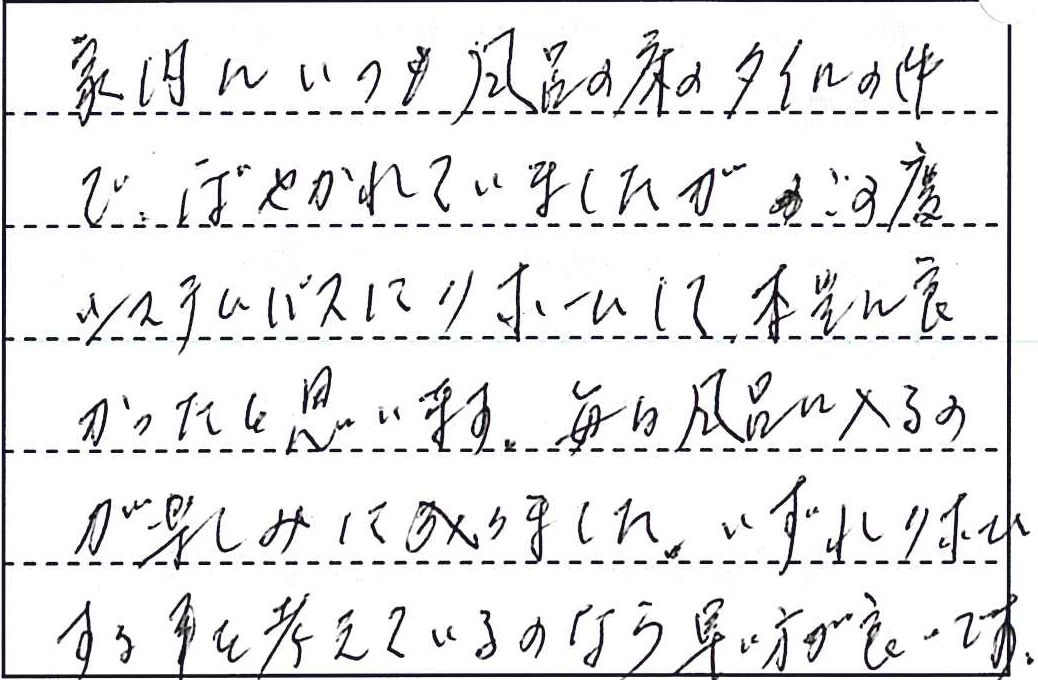 家内にいつも風呂の床のタイルの件
で、ぼやかれていましたが この度
システムバスにリホームして、本当に良
かったと思います。毎日風呂に入るの
が楽しみに成りました。いずれリホーム
する事を考えているのなら早い方が良いです。